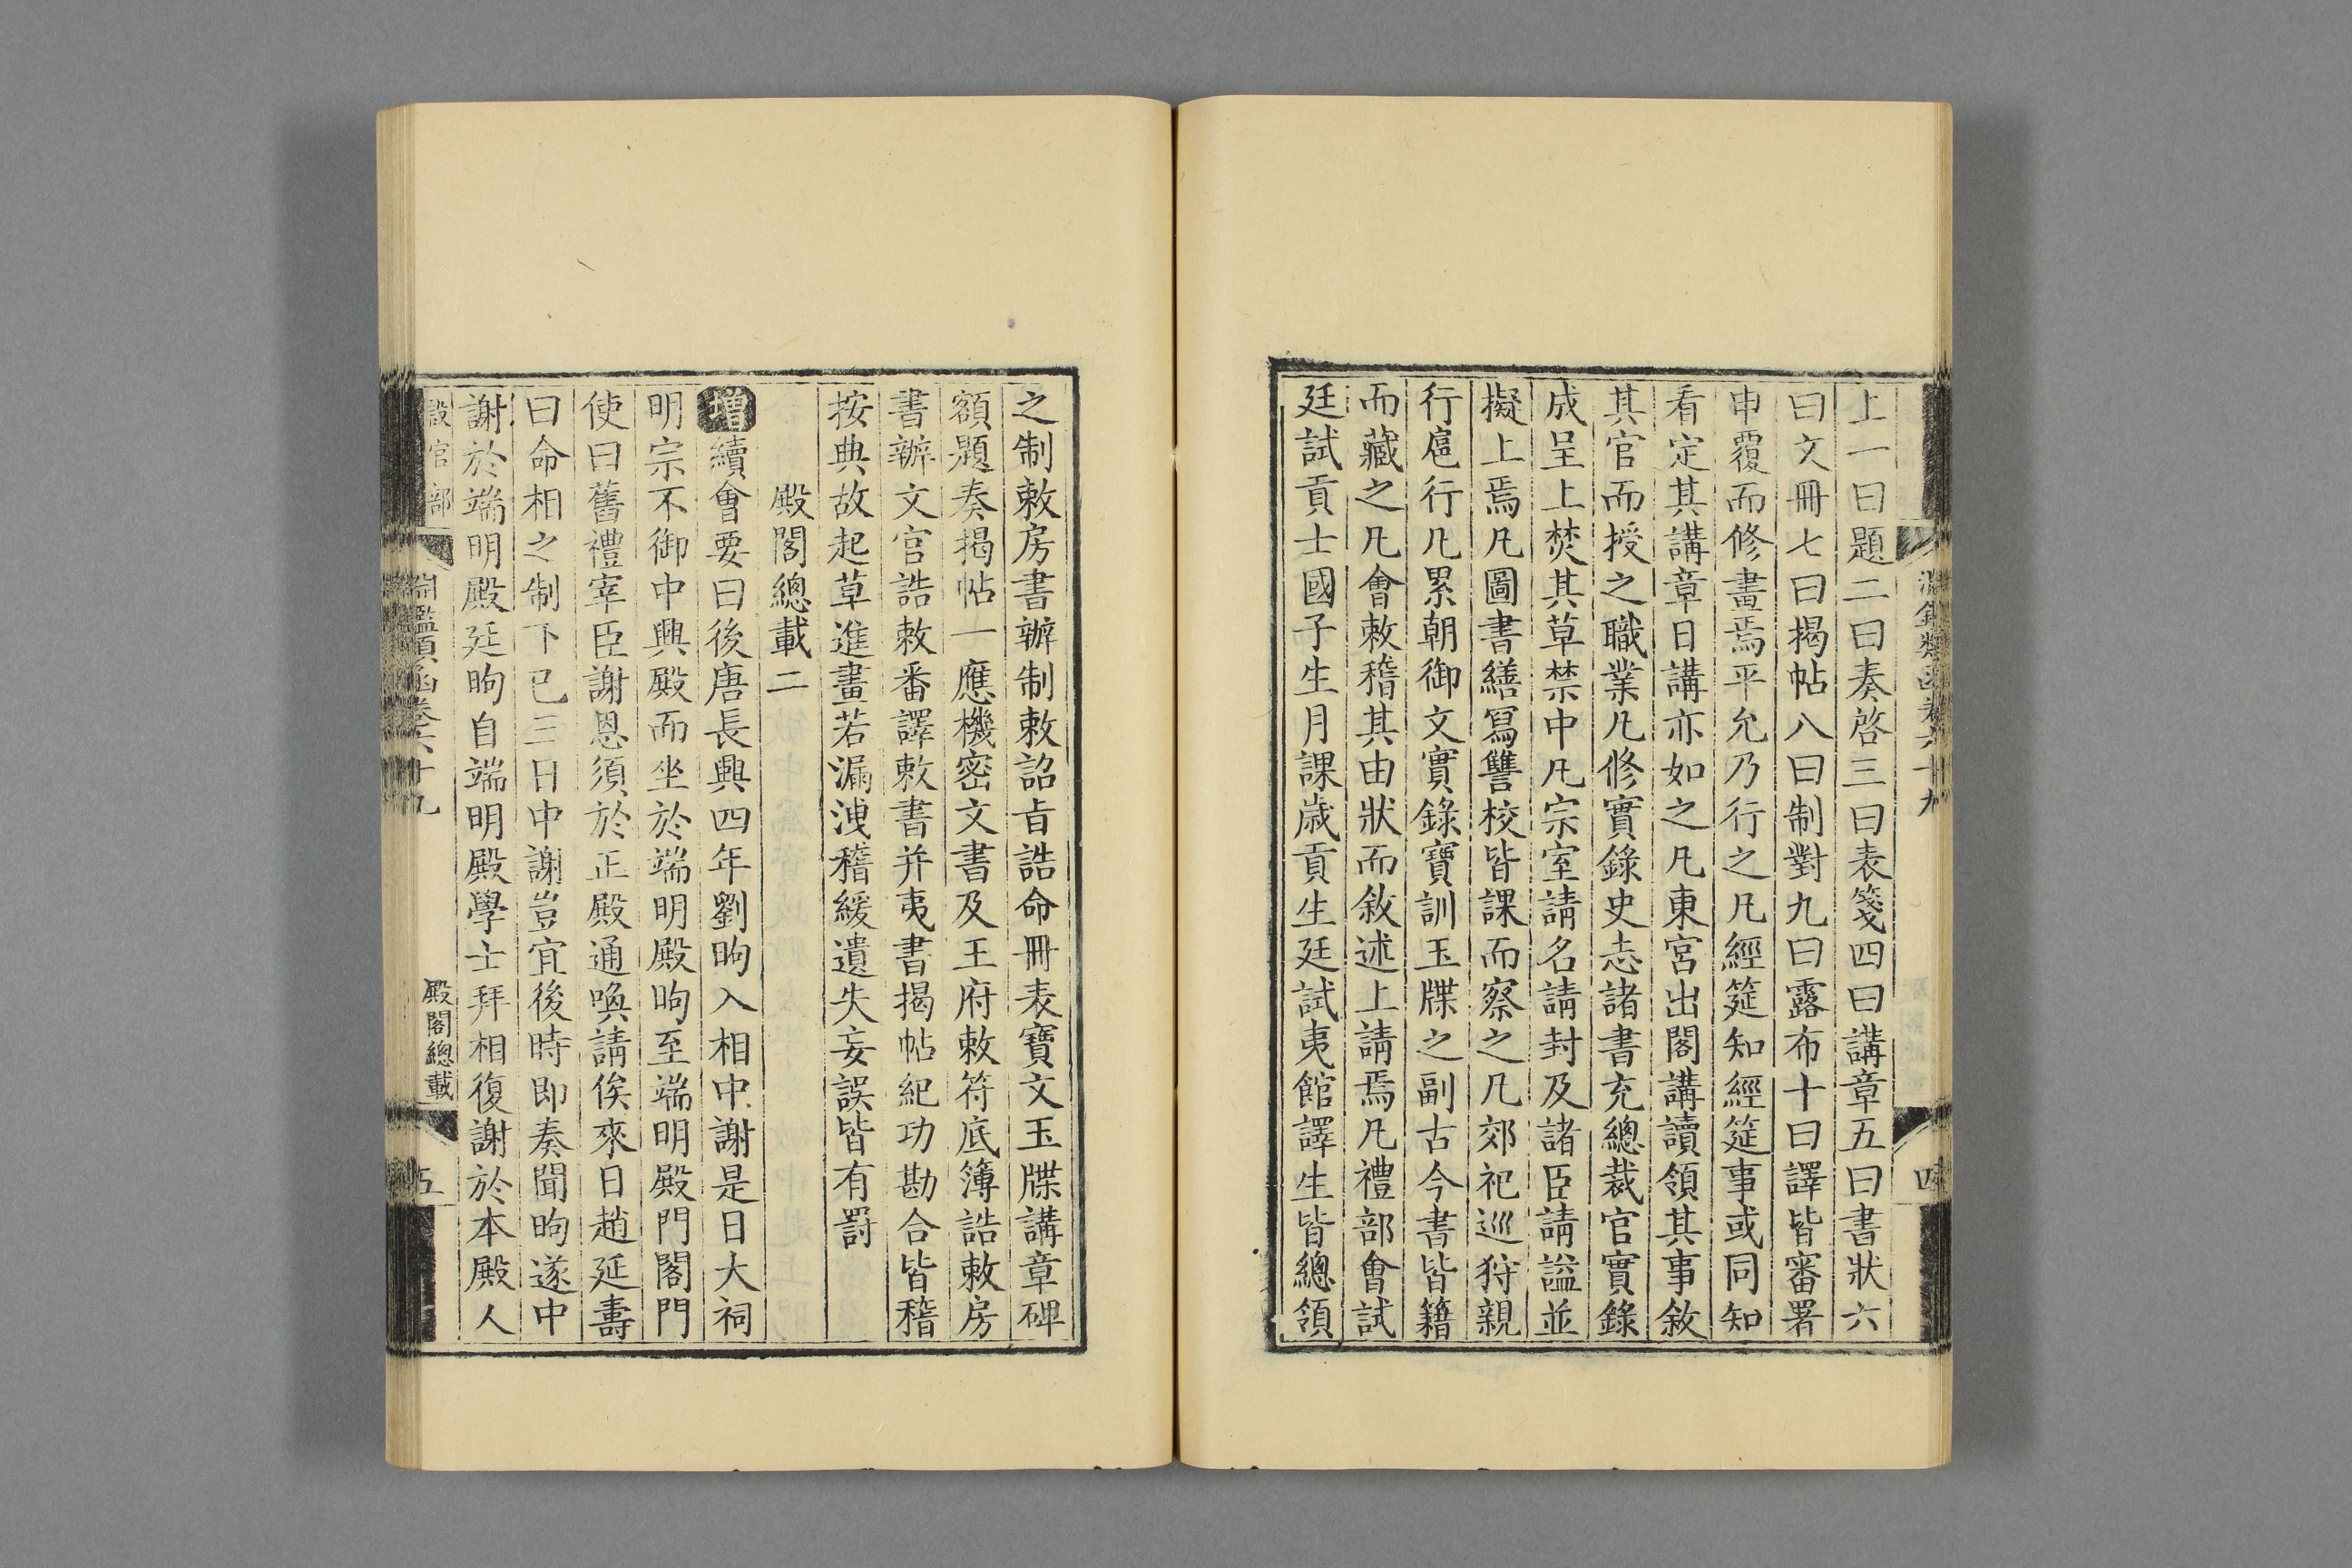 上一曰題二曰奏啓三曰表箋四曰講章五曰書狀六
曰文冊七曰揭帖八曰制對九曰露布十曰譯皆審署
申覆而修畫焉平允乃行之凡經筵知經筵事或同知
看定其講章日講亦如之凡東宮出閣講讀領其事敘
其官而授之職業凡修實錄史志諸書充總裁官實錄
成呈上焚其草禁中凡宗室請名請封及諸臣請諡並
擬上焉凡圖書繕寫讐校皆課而察之凡郊祀巡狩親
行扈行凡累朝御文實錄寶訓玉牒之副古今書皆籍
而藏之凡會敕稽其由狀而敘述上請焉凡禮部會試
廷試貢士國子生月課歲貢生廷試夷館譯生皆總領
之制敕房書辦制敕詔旨誥命冊表寶文玉牒講章碑
額題奏揭帖一應機密文書及王府敕符底簿誥敕房
書辦文官誥敕番譯敕書并夷書揭帖紀功勘合皆稽
按典故起草進畫若漏洩稽緩遺失妄誤皆有罰
殿閣總載二
增續會要曰後唐長興四年劉昫入相中謝是日大祠
明宗不御中興殿而坐於端明殿昫至端明殿門閣門
使曰舊禮宰臣謝恩須於正殿通喚請俟來日趙延壽
曰命相之制下已三日中謝豈宜後時即奏聞昫遂中
謝於端明殿廷昫自端明殿學士拜相復謝於本殿人
設官部 淵鑑類函卷六十九 殿閣總載 五